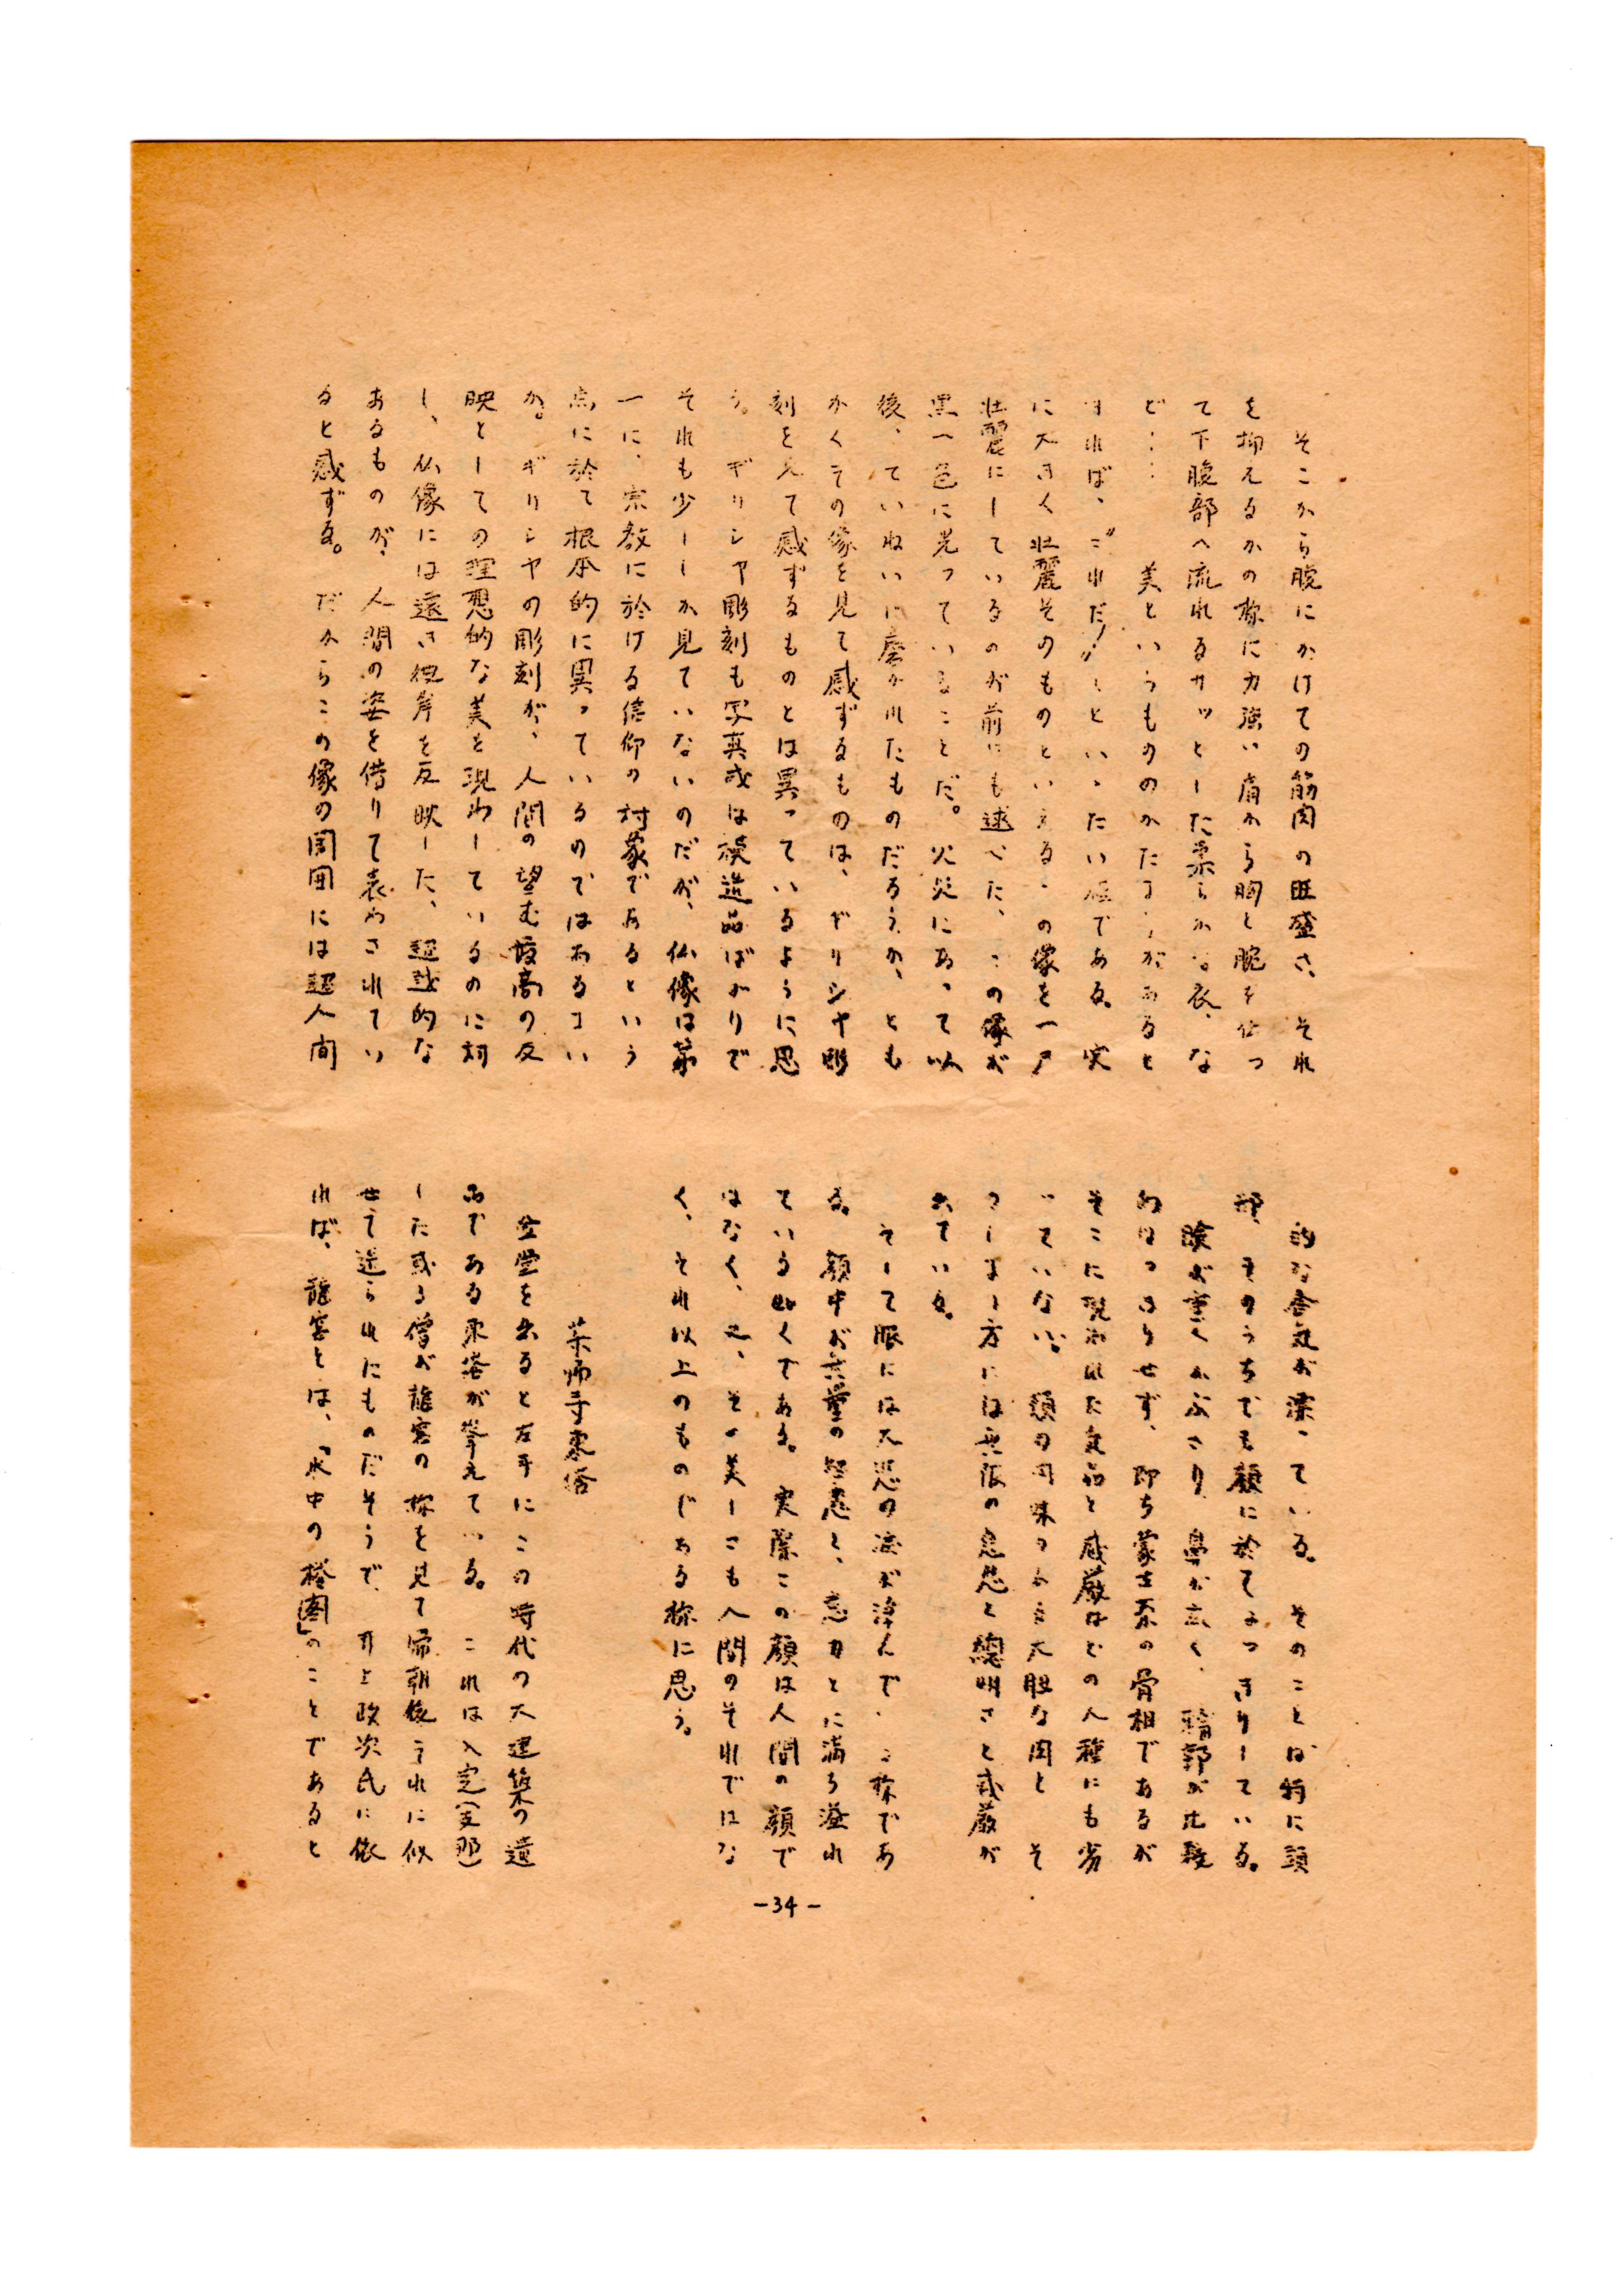 そこから腹にかけての筋肉の旺盛さ、それ
を抑えるかの様に力強い肩から胸と腕を伝っ
て下腹部へ流れるサッとした柔らかな衣、な
ど… 美というもののかたまりがあると
すれば、〝これだ!〟といったい位である。実
に大きく壮麗そのものといえるこの像を一層
壮麗にしているのが前にも述べた、この像が
黒一色に光っていることだ。火災にあって以
後、ていねいに磨かれたものだろうか、とも
かくその像を見て感ずるものは、ギリシヤ彫
刻を見て感ずるものとは異っているように思
う。ギリシヤ彫刻も写真或は模造品ばかりで
それも少ししか見ていないのだが、仏像は第
一に、宗教に於ける信仰の対象であるという
点に於て根本的に異っているのではあるまい
か。ギリシヤの彫刻が、人間の望む最高の反
映としての理想的な美を現わしているのに対
し、仏像には遠き彼岸を反映した、超越的な
あるものが、人間の姿を借りて表わされてい
ると感ずる。だからこの像の周囲には超人間
的な香気が漂っている。そのことは特に頭
部、そのうちでも顔に於てはっきりしている。
瞼が重くかぶさり、鼻が広く、輪郭が比較
的はっきりせず、即ち蒙古系の骨相であるが
そこに現われた気品と威厳はどの人種にも劣
っていない。頬の円味のある大胆な肉と そ
の 方には無限の慈悲と聡明さと威厳が
出ている。
そして眼には大悲の涙が浮んで 様であ
る。顔中が無量の智恵と、意力とに満ち溢れ
ている如くである。実際この顔は人間の顔で
はなく、又、その美しさも人間のそれではな
く、それ以上のものじある様に思う。
薬師寺東塔
金堂を出ると左手にこの時代の大建築の遺
品である東塔が聳えている。これは入定(支那)
した或る僧が龍宮の様を見て帰朝後それに似
せて造られたものだそうで、井上政次氏に依
れば、龍宮とは、「水中の楼閣」のことであると
-34-